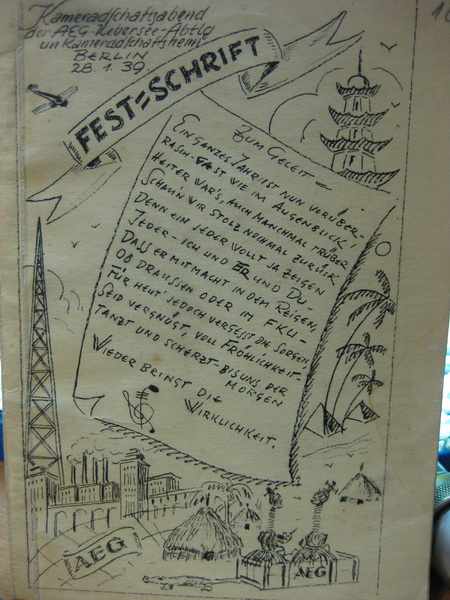 Kameradschaftsabend
der AEG-Uebersee-Abtlg
im Kameradschaftsheim
BERLIN
28.1.39
FEST=SCHRIFT
ZUM GELEIT –
EIN GANZES JAHR IST NUN VORÜBER,
RASCH FAST WIE IM AUGENBLICK
HEITER WAR'S, AUCH MANCHMAL TRÜBER
SCHAUN WIR STOLZ NOCHMAL ZURÜCK:
DENN EIN JEDER WOLLT JA ZEIGEN
JEDER – ICH UND ER UND DU –
DASS ER MITMACHT IN DEM REIGEN,
OB DRAUSSEN ODER IM FKU –
FÜR HEUT' JEDOCH VERGESST DIE SORGEN,
SEID VERGNÜGT, VOLL FRÖHLICHKEIT –
TANZT UND SCHERZT – BIS UNS DER
MORGEN
WIEDER BRINGT DIE
WIRKLICHKEIT.
AEG
AEG